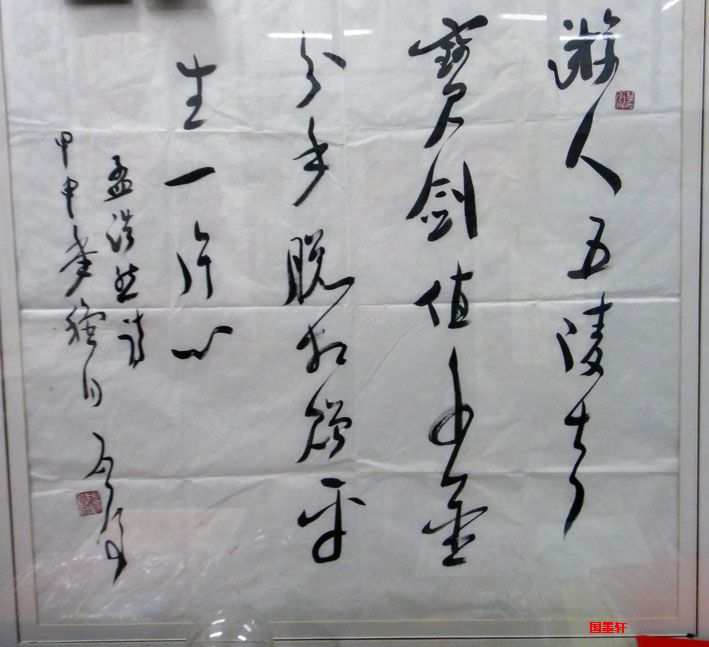 游人五陵去
寶剑值千金
分手脱相赠平
生一片心
孟浩然诗
甲申年月
国墨轩